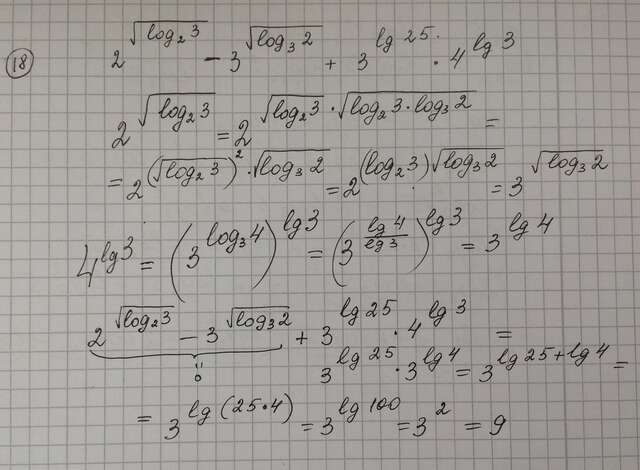 18
2^{\sqrt{log_2 3}} - 3^{\sqrt{log_3 2}} + 3^{lg 25} · 4^{lg 3}
2^{\sqrt{log_2 3}} = 2^{\sqrt{log_2 3} · \sqrt{log_2 3 · log_3 2}} =
= 2^{(\sqrt{log_2 3})^2 · \sqrt{log_3 2}} = 2^{(log_2 3) · \sqrt{log_3 2}} = 3^{\sqrt{log_3 2}}
4^{lg 3} = (3^{log_3 4})^{lg 3} = (3^{\frac{lg 4}{lg 3}})^{lg 3} = 3^{lg 4}
2^{\sqrt{log_2 3}} - 3^{\sqrt{log_3 2}} + 3^{lg 25} · 4^{lg 3} =
0 3^{lg 25} · 3^{lg 4} = 3^{lg 25 + lg 4} =
= 3^{lg (25·4)} = 3^{lg 100} = 3^2 = 9